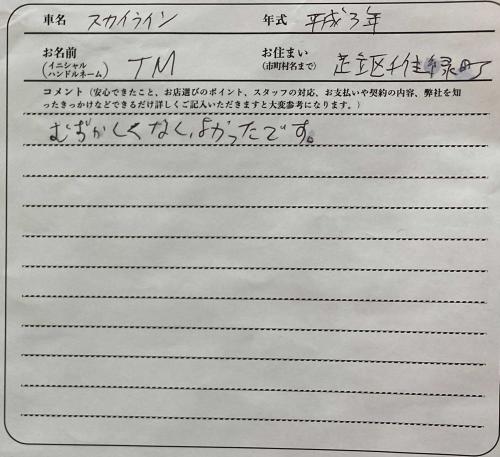 車名 スカイライン 年式 平成3年
お名前 (イニシャル ハンドルネーム) TM お住まい (市町村名まで) 足立区千住緑町
コメント（安心できたこと、お店選びのポイント、スタッフの対応、お支払いや契約の内容、弊社を知
ったきっかけなどできるだけ詳しくご記入いただきますと大変参考になります。）
むずかしくなく、よかったです。